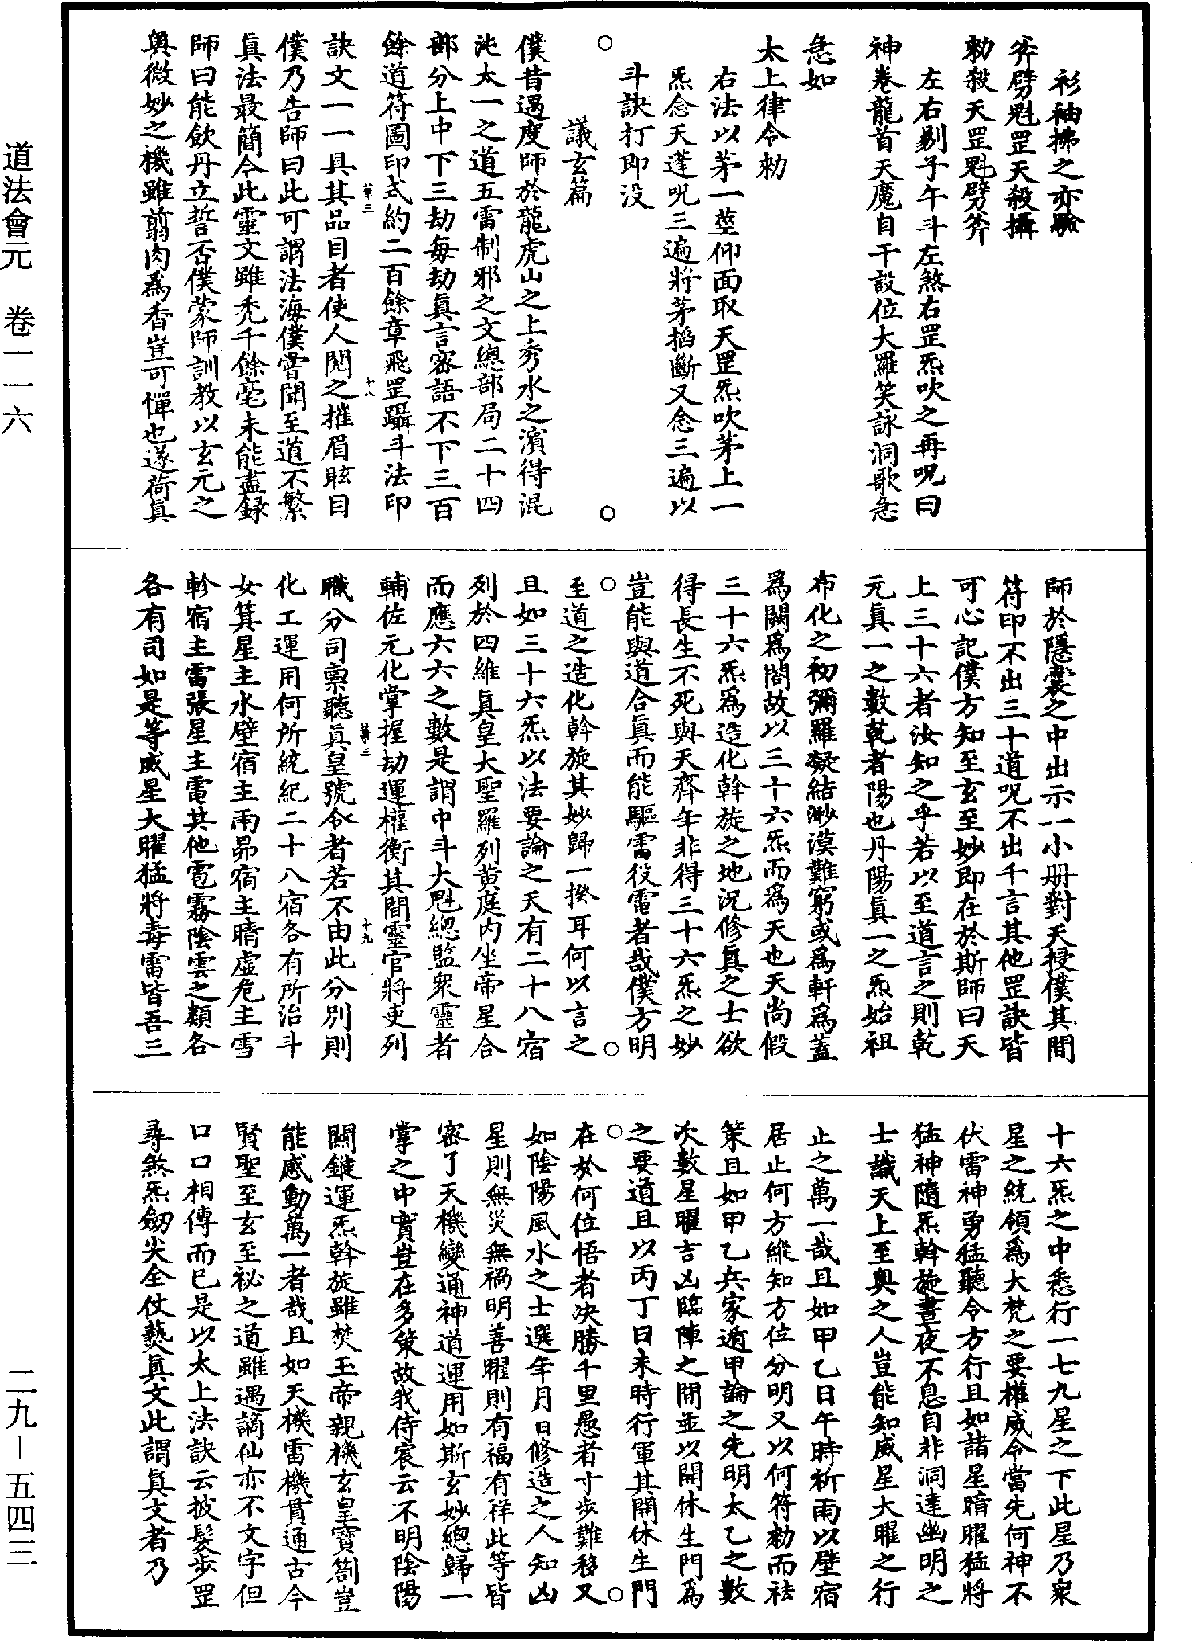 道法會元　卷一一六
二九－五四三
衫袖拂之亦驗
斧劈魁罡天殺攝
勑殺天罡魁劈斧
左右剔子午斗左煞右罡炁吹之再呪曰
神卷龍首天魔自干設位大羅笑詠洞歌急
急如
太上律令勑
右法以茅一莖仰面取天罡炁吹茅上一
炁念天蓬呪三遍將茅搯斷又念三遍以
斗訣打即没
議玄篇
僕昔遇度師於龍虎山之上秀水之濱得混
沌太一之道五雷制邪之文總部局二十四
部分上中下三劫每劫真言密語不下三百
餘道符圖印式約二百餘章飛罡躡斗法印
華三
十八
訣文一一具其品目者使人閲之摧眉眩目
僕乃告師曰此可謂法海僕嘗聞至道不繁
真法最簡今此靈文雖秃千餘毫未能盡録
師曰能飲丹立誓否僕蒙師訓教以玄元之
奥微妙之機雖翦肉為香豈可憚也遂荷真
師於隱囊之中出示一小册對天授僕其間
符印不出三十道呪不出千言其他罡訣皆
可心記僕方知至玄至妙即在於斯師曰天
上三十六者汝知之乎若以至道言之則乾
元真一之數乾者陽也丹陽真一之炁始祖
布化之初彌羅凝結渺漠難窮或為軒為蓋
為闢為閤故以三十六炁而為天也天尚假
三十六炁為造化斡旋之地況修真之士欲
得長生不死與天齊年非得三十六炁之妙
豈能與道合真而能驅雷役電者哉僕方明
至道之造化斡旋其妙歸一揆耳何以言之
且如三十六炁以法要論之天有二十八宿
列於四維真皇大聖羅列黄庭内坐帝星合
而應六六之數是謂中斗大魁總監衆靈者
輔佐元化掌握劫運權衡其間靈官將吏列
華三
十九
職分司禀聽真皇號令者若不由此分別則
化工運用何所統紀二十八宿各有所治斗
女箕星主水壁宿主雨昴宿主晴虚危主雪
軫宿主雷張星主電其他雹霧陰雲之類各
各有司如是等威星大曜猛將毒雷皆吾三
十六炁之中悉行一七九星之下此星乃衆
星之統領為大梵之要權威令當先何神不
伏雷神勇猛聽令方行且如諸星暗曜猛將
猛神隨炁斡旋晝夜不息自非洞達幽明之
士識天上至奥之人豈能知威星大曜之行
止之萬一哉且如甲乙日午時祈雨以壁宿
居止何方縱知方位分明又以何符勑而祛
策且如甲乙兵家遁甲論之先明太乙之數
次數星曜吉凶臨陣之開並以開休生門為
之要道且以丙丁日未時行軍其開休生門
在於何位悟者決勝千里愚者寸步難移又
如陰陽風水之士選年月日修造之人知凶
星則無災無禍明善曜則有福有祥此等皆
密了天機變通神道運用如斯玄妙總歸一
掌之中實豈在多策故我侍宸云不明陰陽
關鍵運炁斡旋雖焚玉帝親機玄皇寶劄豈
能感動萬一者哉且如天機雷機貫通古今
賢聖至玄至祕之道雖遇謫仙亦不文字但
口口相傳而已是以太上法訣云披髮步罡
尋煞炁劒尖全仗爇真文此謂真文者乃